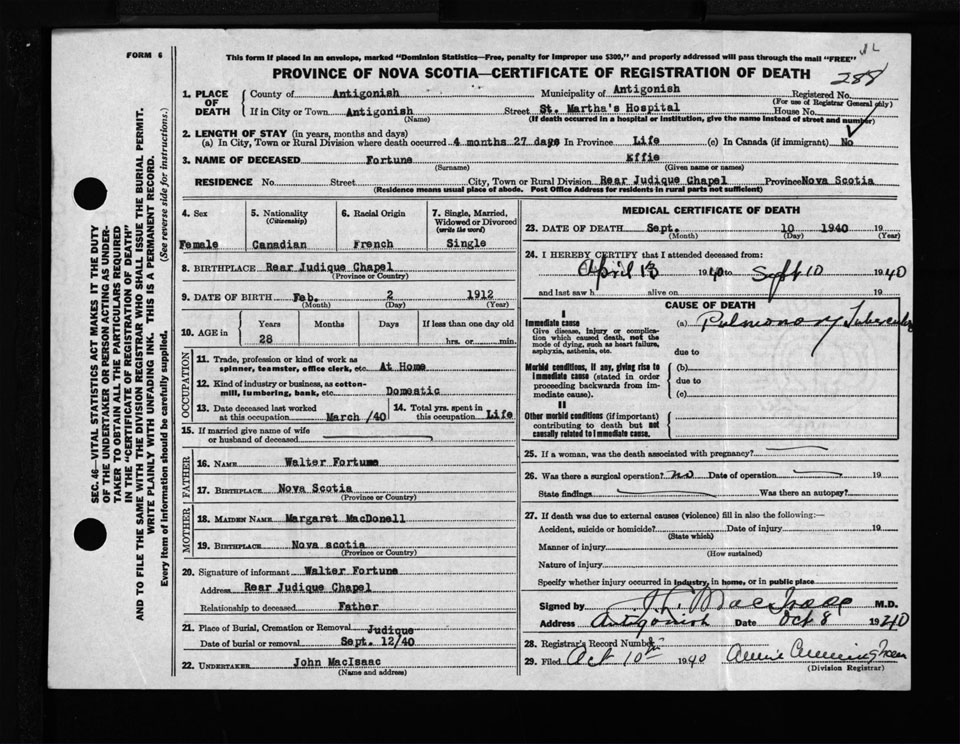 JL
FORM 6
This form if placed in an envelope, marked "Dominion Statistics—Free, penalty for improper use $300," and properly addressed will pass through the mail "FREE"
288
PROVINCE OF NOVA SCOTIA—CERTIFICATE OF REGISTRATION OF DEATH
SEC. 46—VITAL STATISTICS ACT MAKES IT THE DUTY
OF THE UNDERTAKER OR PERSON ACTING AS UNDER-
TAKER TO OBTAIN ALL THE PARTICULARS REQUIRED
IN THE "CERTIFICATE OF REGISTRATION OF DEATH"
AND TO FILE THE SAME WITH THE DIVISION REGISTRAR WHO SHALL ISSUE THE BURIAL PERMIT.
WRITE PLAINLY WITH UNFADING INK. THIS IS A PERMANENT RECORD.
Every item of information should be carefully supplied. (See reverse side for instructions.)
1. PLACE OF DEATH
County of Antigonish Municipality of Antigonish Registered No.
(For use of Registrar General only)
If in City or Town Antigonish Street St. Martha's Hospital House No.
(Name) (If death occurred in a hospital or institution, give the name instead of street and number)
2. LENGTH OF STAY (in years, months and days)
(a) In City, Town or Rural Division where death occurred 4 months 27 days In Province Life (c) In Canada (if immigrant) No
3. NAME OF DECEASED Fortune Effie
(Surname) (Given name or names)
RESIDENCE No. Street City, Town or Rural Division Rear Judique Chapel Province Nova Scotia
(Residence means usual place of abode. Post Office Address for residents in rural parts not sufficient)
4. Sex 5. Nationality (Citizenship) 6. Racial Origin 7. Single, Married, Widowed or Divorced (write the word)
Female Canadian French Single
8. BIRTHPLACE Rear Judique Chapel
(Province or Country)
9. DATE OF BIRTH Feb. 2 1912
(Month) (Day) (Year)
10. AGE in Years Months Days If less than one day old
28 hrs. or min.
OCCUPATION
11. Trade, profession or kind of work as
spinner, teamster, office clerk, etc. At Home
12. Kind of industry or business, as cotton-
mill, lumbering, bank, etc. Domestic
13. Date deceased last worked
at this occupation March /40
14. Total yrs. spent in
this occupation Life
15. If married give name of wife
or husband of deceased
FATHER
16. NAME Walter Fortune
17. BIRTHPLACE Nova Scotia
(Province or Country)
MOTHER
18. MAIDEN NAME Margaret MacDonell
19. BIRTHPLACE Nova scotia
(Province or Country)
20. Signature of informant Walter Fortune
Address Rear Judique Chapel
Relationship to deceased Father
21. Place of Burial, Cremation or Removal Judique
Date of burial or removal Sept. 12/40
22. UNDERTAKER John MacIsaac
(Name and Address)
MEDICAL CERTIFICATE OF DEATH
23. DATE OF DEATH Sept. 10 1940 19
(Month) (Day) (Year)
24. I HEREBY CERTIFY that I attended deceased from:
April 13 1940 to Sept 10 1940
and last saw h alive on 19
CAUSE OF DEATH
I
Immediate cause (a) Pulmonary Tuberculosis
Give disease, injury or complica-
tion which caused death, not the
mode of dying, such as heart failure,
asphyxia, asthenia, etc.
due to
Morbid conditions, if any, giving rise to
immediate cause (stated in order
proceeding backwards from im-
mediate cause).
(b)
due to
(c)
II
Other morbid conditions (if important)
contributing to death but not
causally related to immediate cause.
25. If a woman, was the death associated with pregnancy?
26. Was there a surgical operation? no Date of operation 19
State findings Was there an autopsy?
27. If death was due to external causes (violence) fill in also the following:—
Accident, suicide or homicide? Date of injury 19
(State which)
Manner of injury
(How sustained)
Nature of injury
Specify whether injury occurred in industry, in home, or in public place
Signed by J. L. MacIsaac M.D.
Address Antigonish Date Oct 8 1940
28. Registrar's Record Number
29. Filed Oct 10th 1940 Annie Cunningham
(Division Registrar)